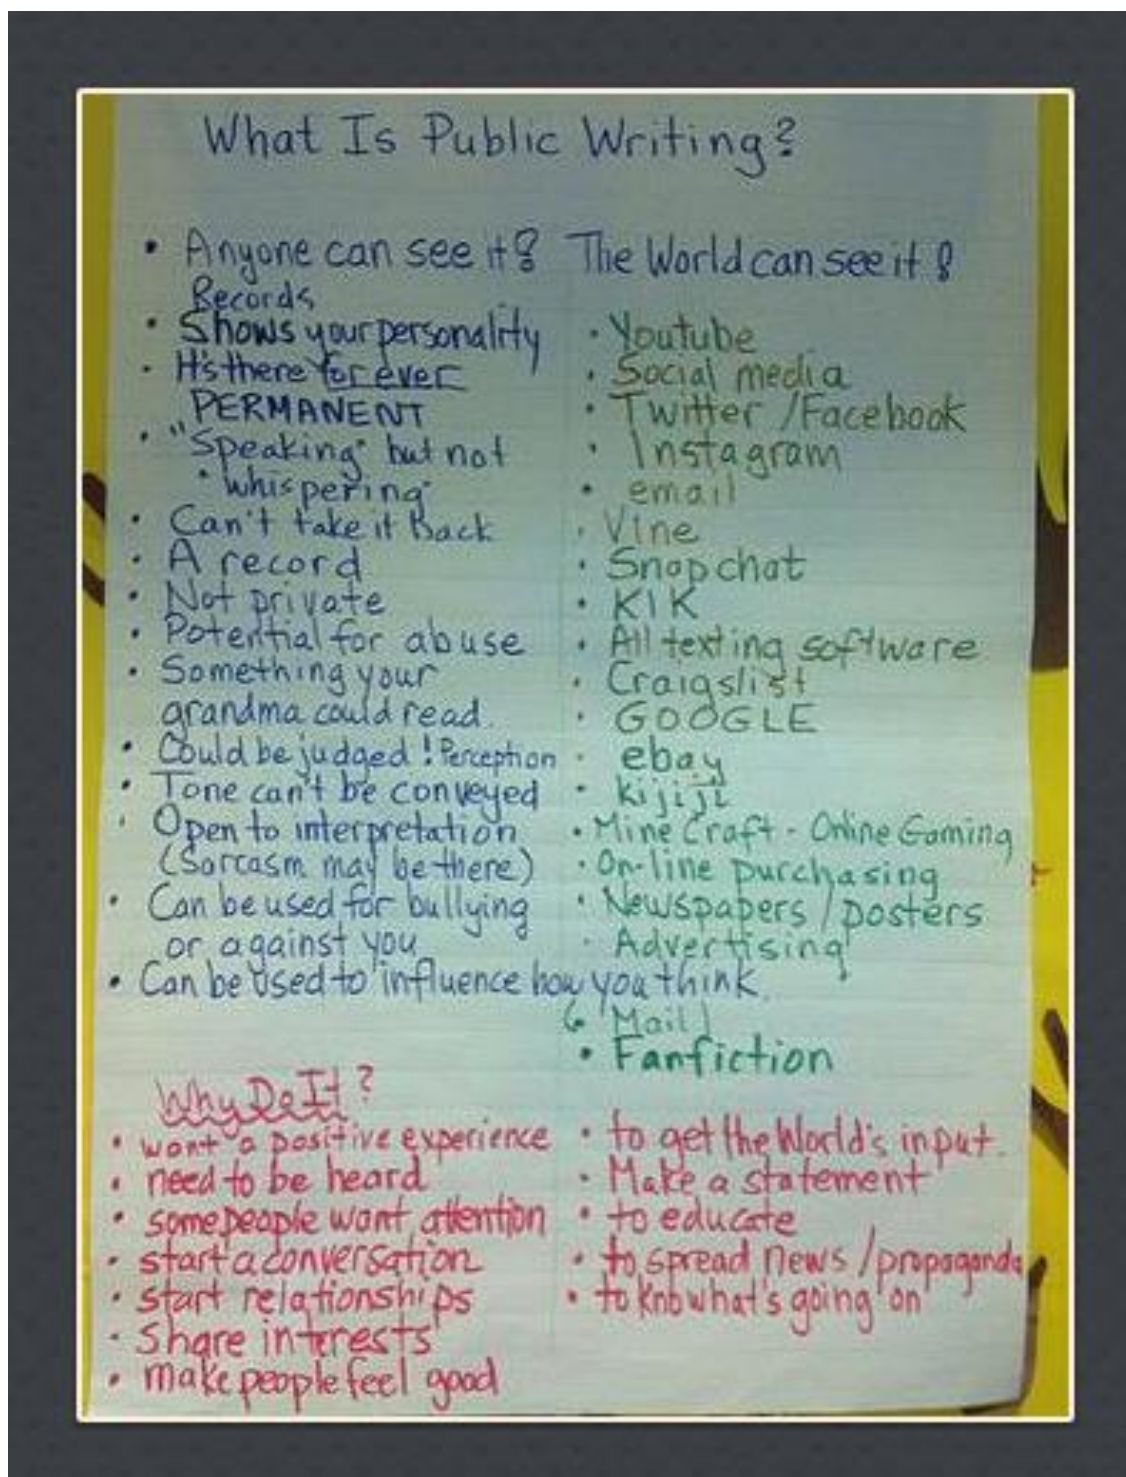 What Is Public Writing?
• Anyone can see it! The World can see it!
Records
• Shows your personality
• It's there for ever
PERMANENT
• "Speaking" but not
"whispering"
• Can't take it Back
• A record
• Not private
• Potential for abuse
• Something your
grandma could read.
• Could be judged! Perception
• Tone can't be conveyed
• Open to interpretation
(Sarcasm may be there)
• Can be used for bullying
or against you
• Can be used to influence how you think.
• Youtube
• Social media
• Twitter / Facebook
• Instagram
• email
• Vine
• Snapchat
• KIK
• All texting software
• Craigslist
• GOOGLE
• ebay
• kijiji
• Mine Craft - Online Gaming
• On-line purchasing
• Newspapers / posters
• Advertising
Mail
• Fanfiction
Why Do It?
• want a positive experience
• need to be heard
• some people want attention
• start a conversation
• start relationships
• Share interests
• make people feel good
• to get the World's input.
• Make a statement
• to educate
• to spread news / propaganda
• to know what's going on